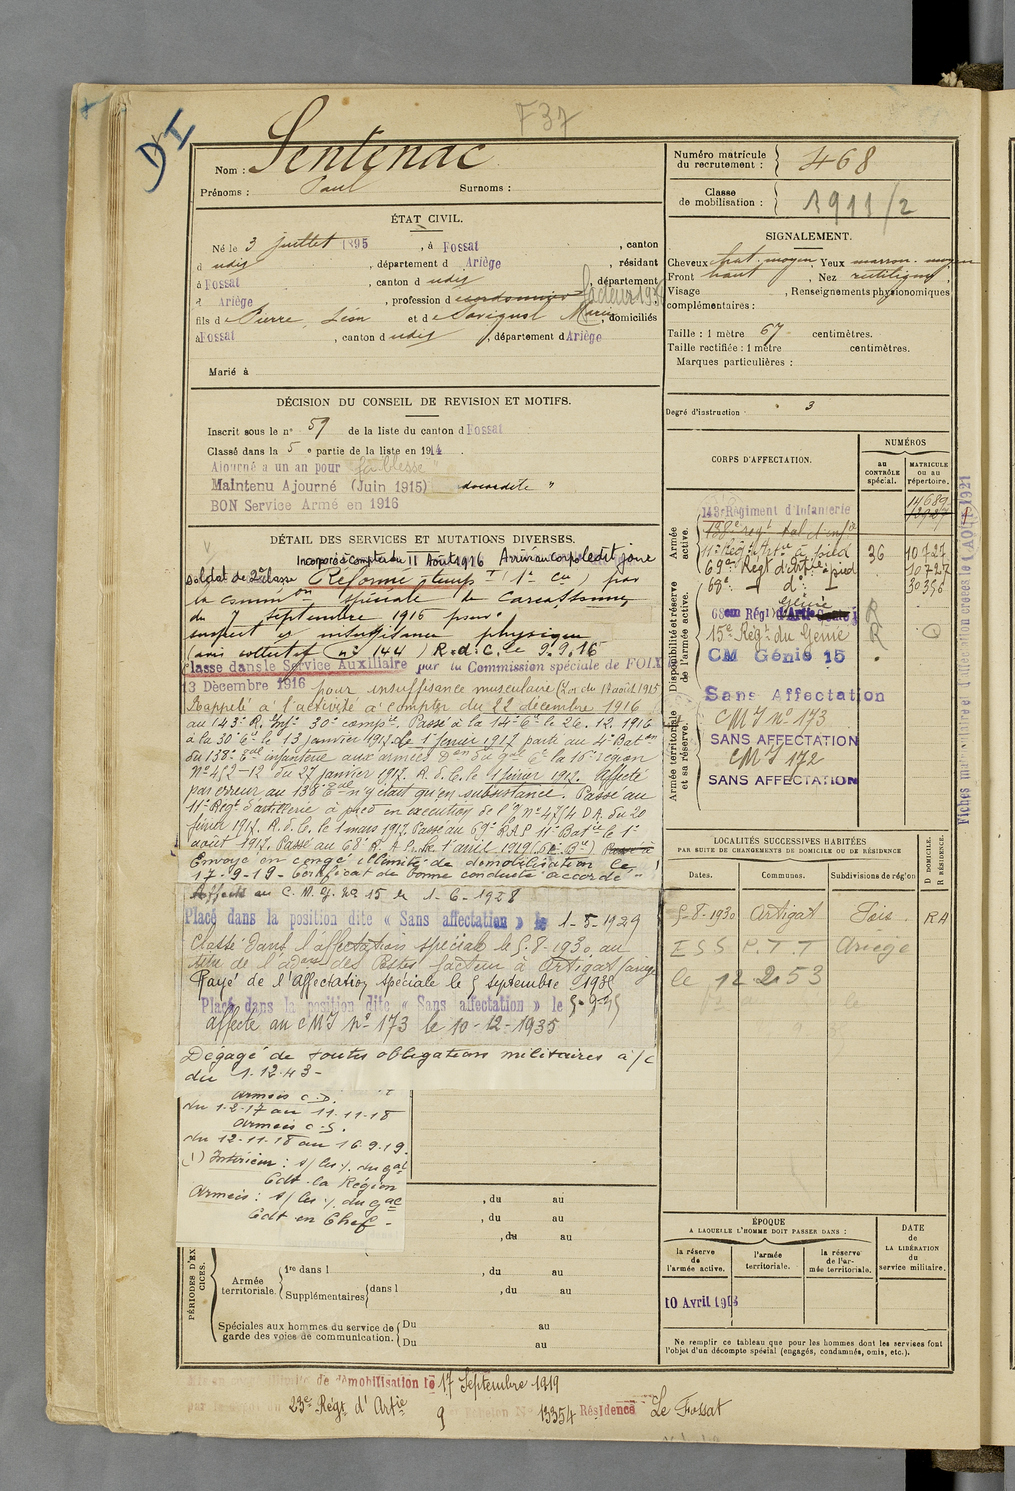 F37
DI
Nom : Sentenac
Prénoms : Paul Surnoms :
ÉTAT CIVIL.
Né le 3 juillet 1895, à Fossat, canton
d udis, département d Ariège, résidant
à Fossat, canton d udis, département
d Ariège, profession de cordonnier facteur
fils de Pierre, Jean et de Marie, domiciliés
à Fossat, canton d udis, département d Ariège
Marié à
DÉCISION DU CONSEIL DE REVISION ET MOTIFS.
Inscrit sous le n° 59 de la liste du canton d Fossat
Classé dans la 5e partie de la liste en 1914.
Ajourné a un an pour faiblesse
Maintenu Ajourné (Juin 1915)
BON Service Armé en 1916
DÉTAIL DES SERVICES ET MUTATIONS DIVERSES.
Incorporé à compter du 11 Août 1916 Arrivé au corps le dit jour
soldat de 2e classe Réformé tempre (1e Cie) par
la commion spéciale de Carcassonne
du 7 septembre 1916 pour
suspect et insuffisance physique
(avis collectif n° 144) R. d. C. le 9.9.16
Classé dans le Service Auxiliaire par la Commission spéciale de FOIX
13 Décembre 1916 pour insuffisance musculaire (Loi du 17 août 1915
Rappelé à l'activité à compter du 22 décembre 1916
au 143e R. Infie 30e compie. Passé à la 14e Cie le 26.12.1916
à la 30e Cie le 13 janvier 1917. Le 1er février 1917 parti au 4e Baton
du 138e d'infanterie aux armées Don du Gal Ct la 16e région
N° 412-12 du 27 janvier 1917. R. d. C. le 1er février 1917. Affecté
par erreur au 138e n'y était qu'en subsistance. Passé au
11e Régt d'artillerie à pied en exécution de l'O/ n° 4714 D.A. du 20
février 1917. R. d. C. le 1 mars 1917. Passé au 69e RAP 11e Batie le 1er
août 1917. Passé au 68e R.A.P. le 1 avril 1919
Envoyé en congé illimité de démobilisation le
17-9-19 - Certificat de bonne conduite accordé -
Affecté au C. M. G. n° 15 le 1-6-1928
Placé dans la position dite « Sans affectation » le 1-5-1929
Classé dans l'affectation spéciale le 5-8-1930 au
titre de l'adon des Postes facteur à Artigat Ariège
Rayé de l'Affectation spéciale le 5 septembre 1935
Placé dans la position dite « Sans affectation » le 5-9-35
affecté au CMI n° 173 le 10-12-1935
Dégagé de toutes obligations militaires à/c
du 1-12-43 -
Armées C. D.
du 1-2-17 au 11-11-18
Armées C. S.
du 12-11-18 au 16-9-19.
(1) Intérieur : s/ les o. du gal
Cdt la Région
Armées : s/ les o. du gal
Cdt en Chef -
, du au
, du au
, du au
PÉRIODES D'EXERCICES.
Armée territoriale.
1re dans l , du au
Supplémentaires dans l , du au
Spéciales aux hommes du service de garde des voies de communication.
Du au
Du au
de démobilisation le 17 Septembre 1919
23e Régt d'Artie 9 Echelon N° 13354 Résidence Le Fossat
Numéro matricule du recrutement : 468
Classe de mobilisation : 1911/2
SIGNALEMENT.
Cheveux chat. moyen Yeux marron. moyen
Front haut, Nez rectiligne
Visage , Renseignements physionomiques
complémentaires :
Taille : 1 mètre 67 centimètres.
Taille rectifiée : 1 mètre centimètres.
Marques particulières :
Degré d'instruction : 3
CORPS D'AFFECTATION.
NUMÉROS
au CONTRÔLE spécial.
MATRICULE ou au répertoire.
Armée active.
Disponibilité et réserve de l'armée active.
Armée territoriale et sa réserve.
143e Régiment d'Infanterie 14689
138e regt d'infie 12927
11e Régt d'Artie à pied 36 10727
69e Régt d'artie à pied 10727
68e - do - 30356
68em Régt d'Artie Génie R
15e Régt du Génie R 0
CM Génie 15
Sans Affectation
CMI n° 173
SANS AFFECTATION
CMI 172
SANS AFFECTATION
Fiches matriculaire et d'affection créées le 1 AOUT 1921
LOCALITÉS SUCCESSIVES HABITÉES
PAR SUITE DE CHANGEMENTS DE DOMICILE OU DE RÉSIDENCE
Dates. Communes. Subdivisions de région D DOMICILE. R RÉSIDENCE.
5-8-1930 Artigat Foix. RA
ESS P.T.T Ariège
le 12 2 53
ÉPOQUE
A LAQUELLE L'HOMME DOIT PASSER DANS :
la réserve de l'armée active.
l'armée territoriale.
la réserve de l'armée territoriale.
DATE DE LA LIBÉRATION du service militaire.
10 Avril 191
Ne remplir ce tableau que pour les hommes dont les services font
l'objet d'un décompte spécial (engagés, condamnés, omis, etc.).